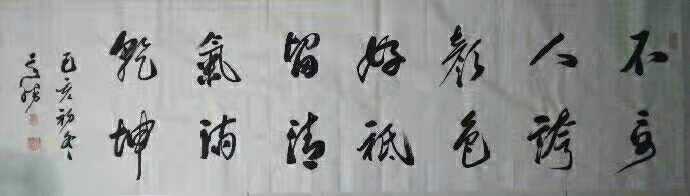 不要
人誇
顏色
好祗
留清
氣滿
乾坤
己亥初冬